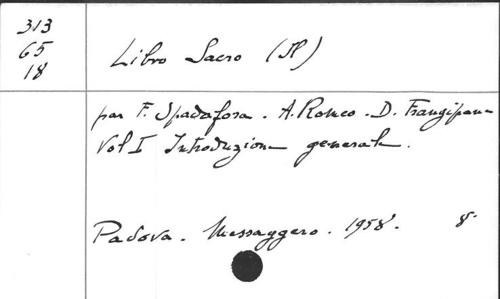 313
65
18
Libro Sacro (Il)
par F. Spadafora. A. Romeo. D. Frangipane
Vol I Introduzione generale.
Padova. Messaggero. 1958. 8°